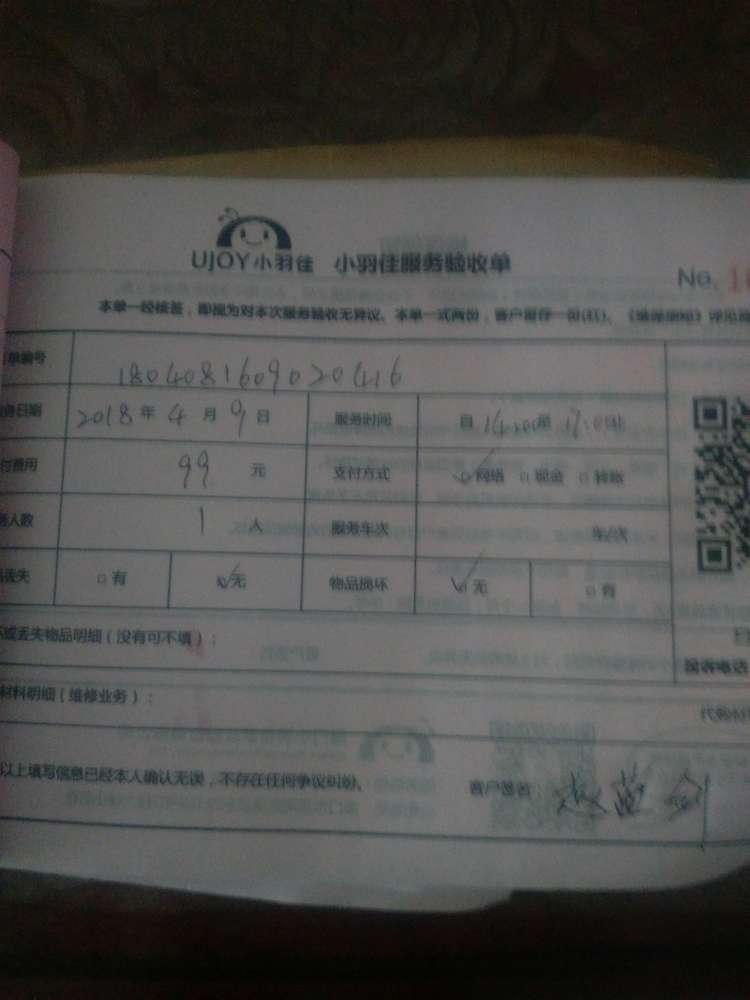 UJOY小羽佳 小羽佳服务验收单
No. 16
本单一经核签，即视为对本次服务验收无异议。本单一式两份，客户留存一份(红)。
单编号 180408160902041 6
务日期 2018年4月9日 服务时间 自14:00至17:0
付费用 99元 支付方式 网络 现金 转账
务人数 1人 服务车次 车/次
品丢失 有 无 物品损坏 无 有
坏或丢失物品明细（没有可不填）：
材料明细（维修业务）：
服务电话
以上填写信息已经本人确认无误，不存在任何争议纠纷。 客户签名：